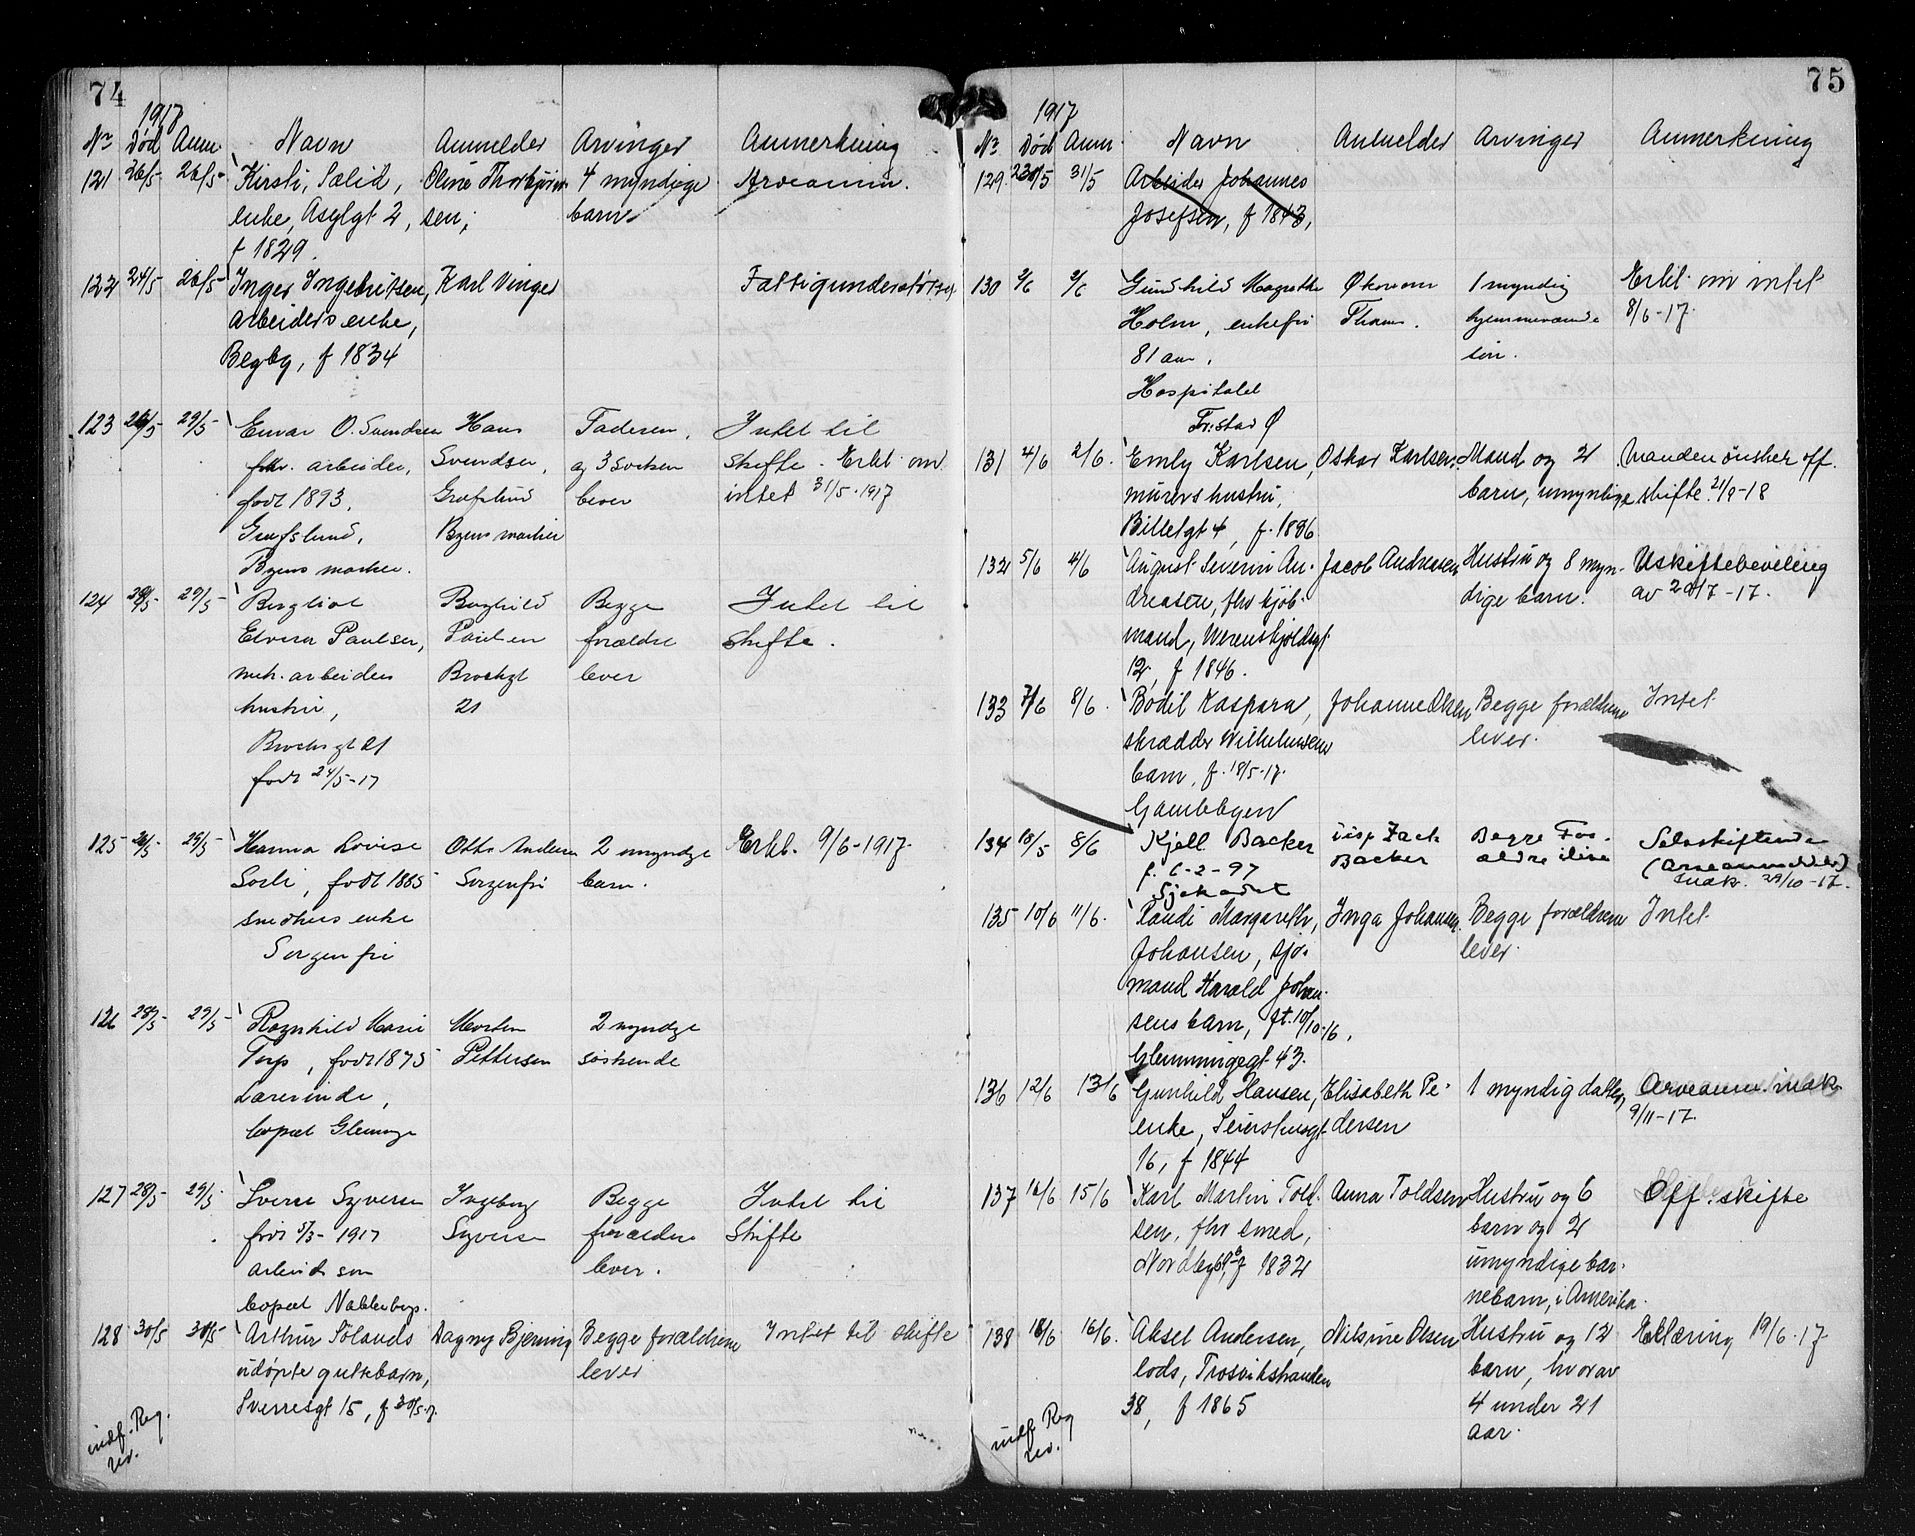 74
1917
No Død Anm Navn Anmelder Arvinger Anmerkning
121 26/5 26/5 Kirsti, Sælid, Oline Thorbjørn- 4 myndige Arveanm.
enke, Asylgt 2, sen; barn
f 1829.
122 24/5 26/5 Inger Ingebritsen, Karl Vinger Fattigunderstøttet
arbeiders enke,
Begby, f 1834
123 26/5 29/5 Einar O. Svendsen Hans Faderen, Intet til
fhv. arbeider, Svendsen, og 3 søsken skifte. Erkl. om
født 1893, Græslund lever intet 31/5-1917
Græslund, Byens marker
Byens marker.
124 29/5 Bergliot Borghild Begge Intet til
Elvira Paulsen, Paulsen forældre skifte.
mek. arbeiders Brochsgt lever
hustru, 21
Brochsgt 21
født 24/5-17
125 26/5 29/5 Hanna Lovise Otto Andersen 2 myndige Erkl. 9/6-1917.
Sorli, født 1865 Sorgenfri barn.
snedkers enke
Sorgenfri
126 28/5 29/5 Ragnhild Marie Morten 2 myndge
Torp, født 1875 Pettersen søskende
Lærerinde,
bopæl Gleminge
127 28/5 29/5 Sverre Syversen Ingeborg Begge Intet til
født 5/3-1917 Syversen forældre Skifte
arbeid søn lever.
bopæl Nabberborg.
128 30/5 31/5 Arthur Følands Dagny Bjerning Begge forældrene Intet til skifte
udøpte guttebarn, lever
Sverresgt 15, f 30/5-17.
indf. Reg.
75
1917
No Død Anm. Navn Anmelder Arvinger Anmerkning
129. 31/5 Arbeider Johannes
Josefsen, f 1843,
130 2/6 2/6 Gundhild Magrethe Økonom 1 myndig Erkl. om intet
Holm, enkefru Thom. hjemmeværende 8/6-17.
81 aar, søn.
Hospitalet
Fr.stad Ø
131 2/6 2/6. Emly Karlsen, Oskar Karlsen, Mand og 2 Manden ønsker off.
murers hustru, barn, umyndige skifte. 21/9-18
Billetgt 4, f. 1886
132 5/6 6/6 August Severin An- Jacob Andreasen, Hustru og 8 myn- Uskiftebevilling
dreasen, fhv kjøb- dige barn. av 20/7-17.
mand, Werenskjoldsgt
12, f 1846.
133 7/6 8/6. Bodil Kaspara, Johanne Olsen Begge forældrene Intet
skrædder Wilhelmsens lever.
barn, f. 18/5-17.
Gamlebyen
134 18/5 8/6 Kjell Backer disp Zach Begge For- Selvskiftende
f. 6-2-97 Backer ældre ilive (arveanmelder)
Sjøkadet indk. 29/10-17.
135 10/6 11/6. Randi Margareth, Inga Johansen. Begge forældrene Intet
Johansen, sjø- lever.
mand Harald Johan-
sens barn, ft. 10/10-16,
Glemmingegt 43.
136 12/6 13/6 Gunhild Hansen, Elisabeth Pe- 1 myndig datter, Arveanm. indk
enke, dersen 9/11-17.
16, f 1844
137 14/6 15/6 Karl Martin Told- Anna Toldsen Hustru og 6 Off. skifte
sen, fhv smed, barn og 2
Nordbygt. f 1832 umyndige bar-
nebarn, i Amerika.
138 16/6 16/6. Aksel Andersen, Nilsine Olsen Hustru og 12 Erklæring 19/6-17
lods, Trosvikstranden barn, hvorav
38, f 1865 4 under 21
aar.
indf Reg